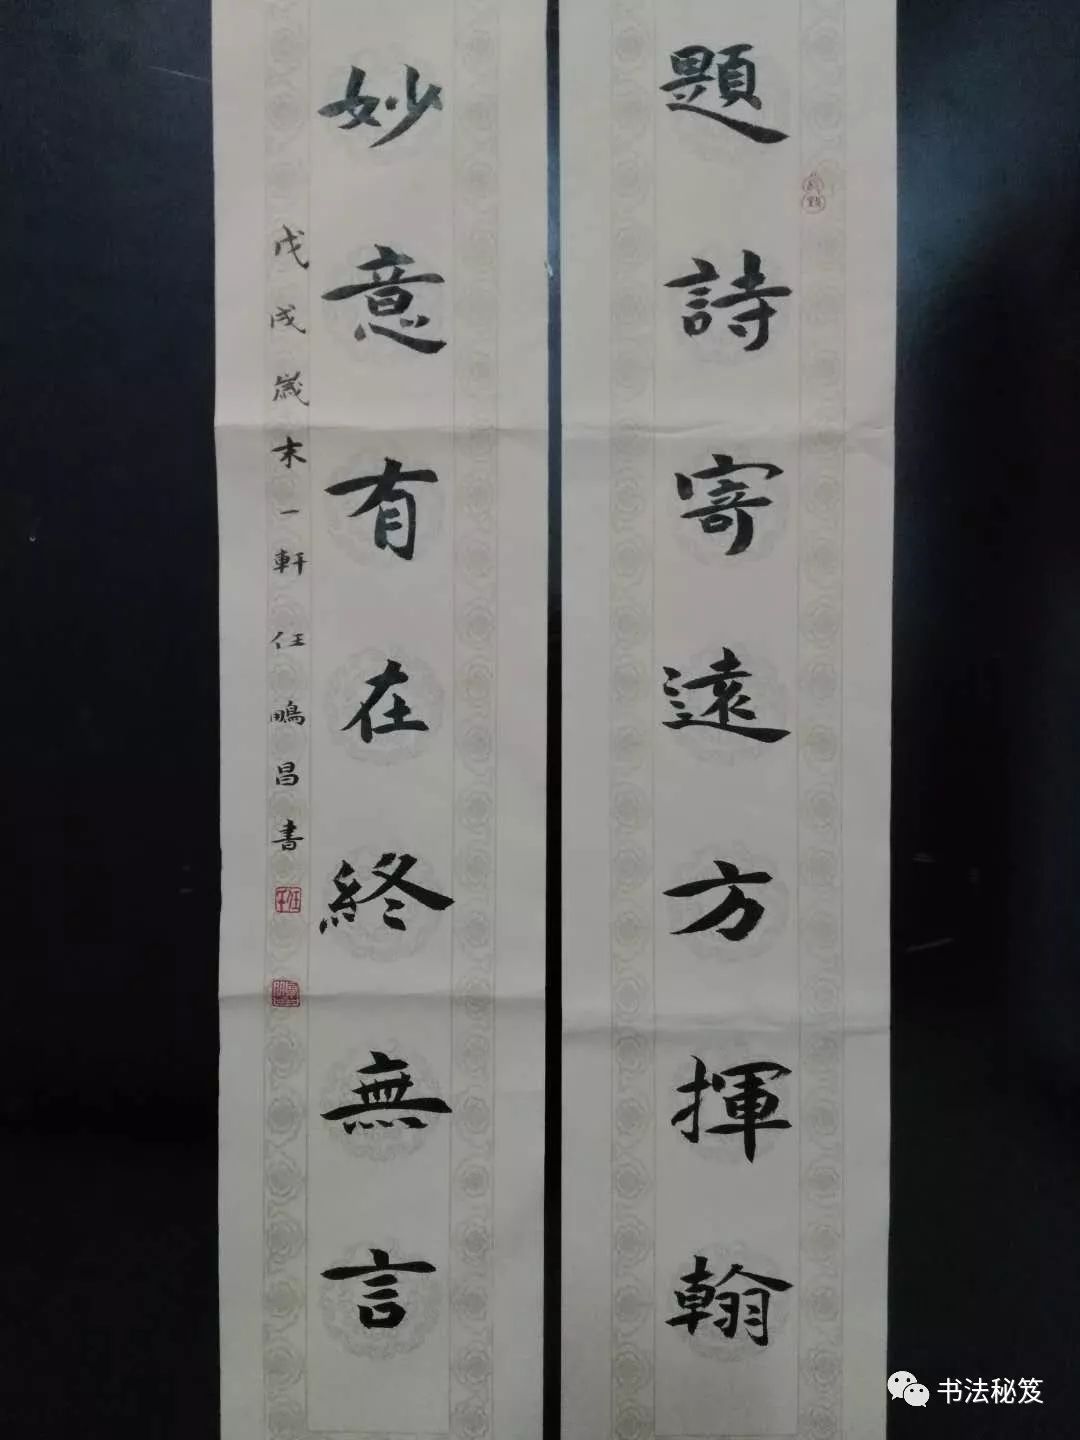 題詩寄遠方揮翰
妙意有在終無言
戊戌歲末一軒任鵬昌書
书法秘笈